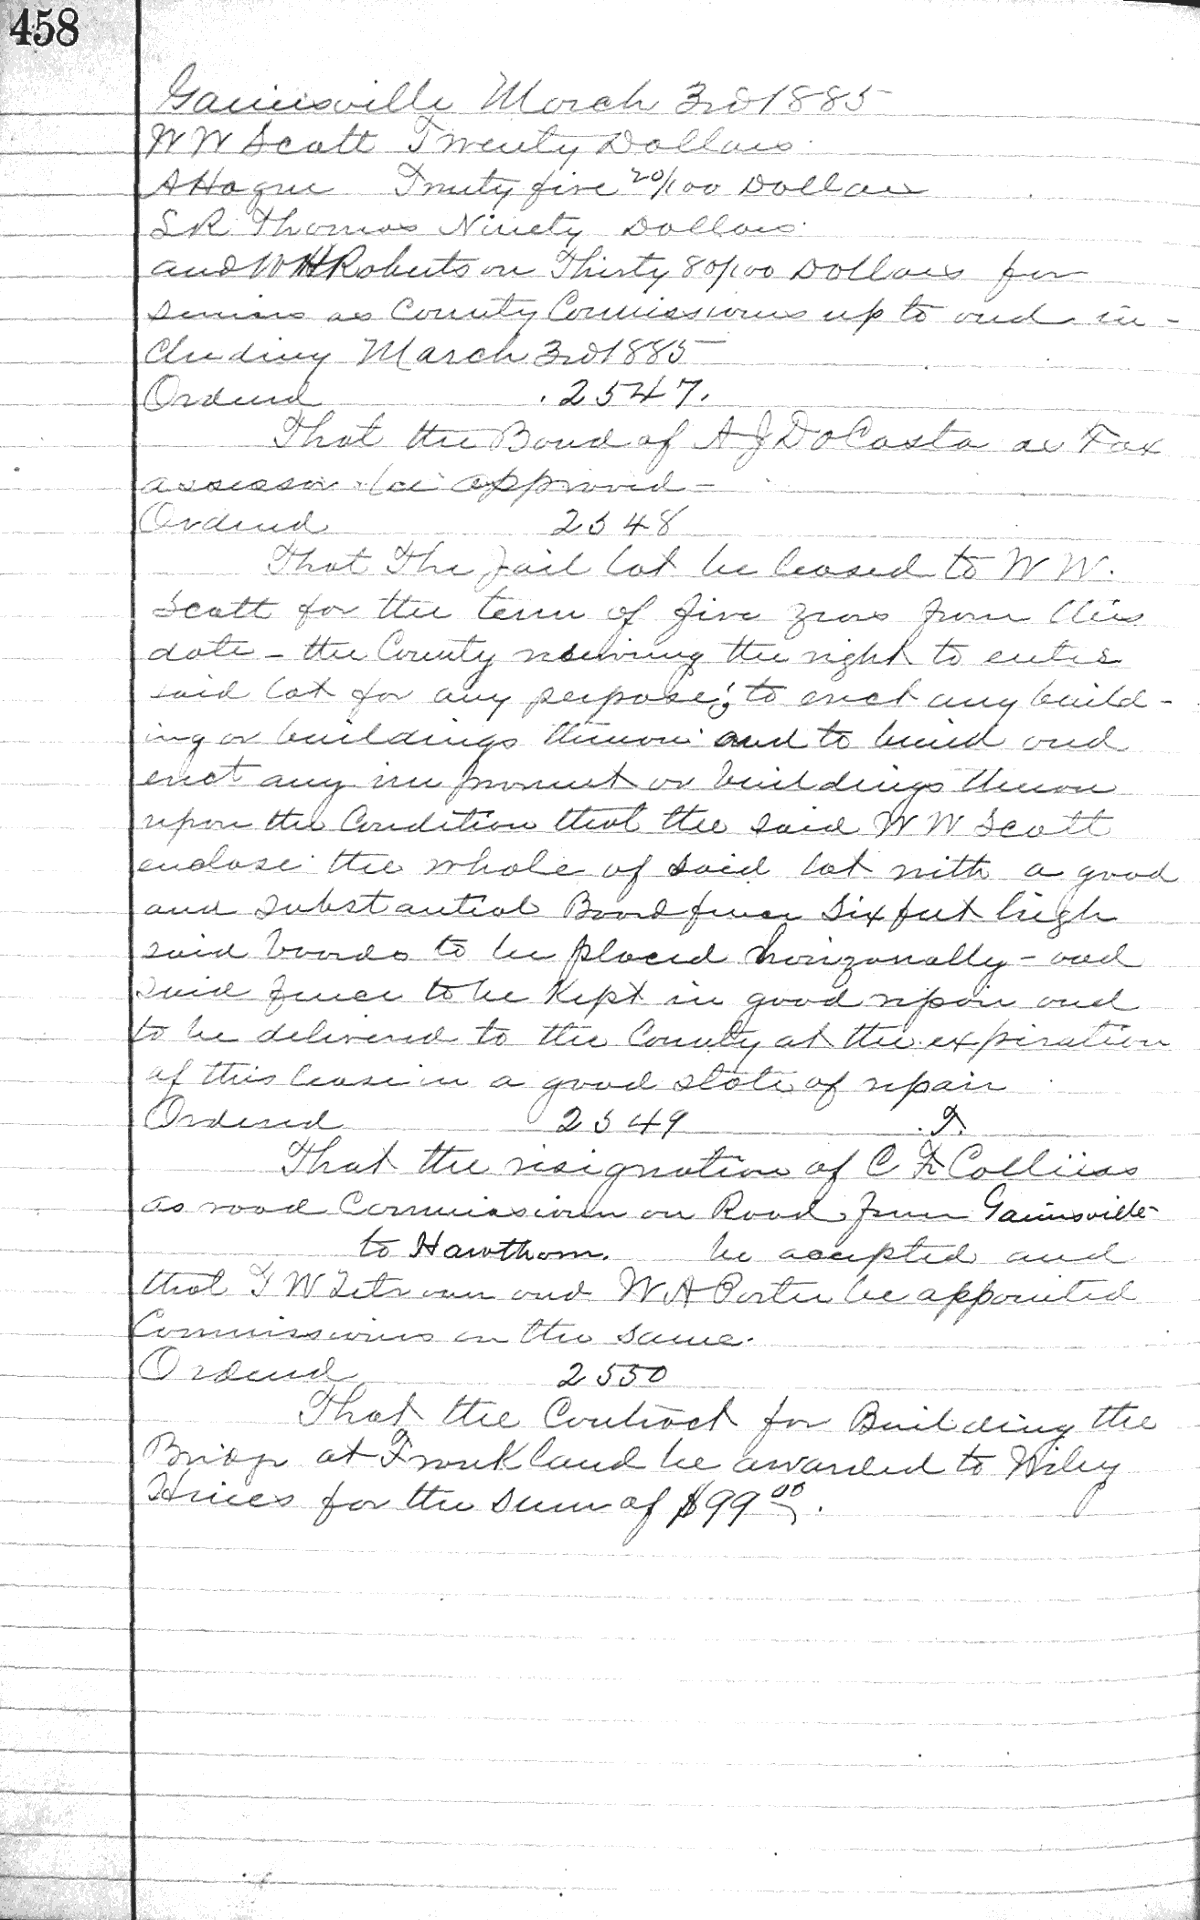 458
Gainesville March 3rd 1885
W W Scott Twenty Dollars.
A Hague Twenty five 20/100 Dollars
S R Thomas Ninety Dollars.
and W H Robertson Thirty 80/100 Dollars for
services as County Commissioners up to and in-
cluding March 3rd 1885
Ordered 2547.
That the Bond of A J DaCosta as Tax
assessor be approved-
Ordered 2548
That The Jail lot be leased to W W.
Scott for the term of five years from this
date - the County reserving the right to enter
said lot for any purpose; to erect any build-
ing or buildings thereon and to build and
erect any improvement or buildings thereon
upon the Condition that the said W W Scott
enclose the whole of said lot with a good
and substantial Board fence Six feet high
said boards to be placed horizonally - and
said fence to be Kept in good repair and
to be delivered to the County at the expiration
of this lease in a good state of repair
Ordered 2549
That the resignation of C F Collins
as road Commissioner on Road from Gainesville
to Hawthorn. be accepted and
that W and W A Porter be appointed
Commissioners on the same.
Ordered 2550
That the Contract for Building the
Bridge at Frankland be awarded to Wiley
Hines for the sum of $99 00.